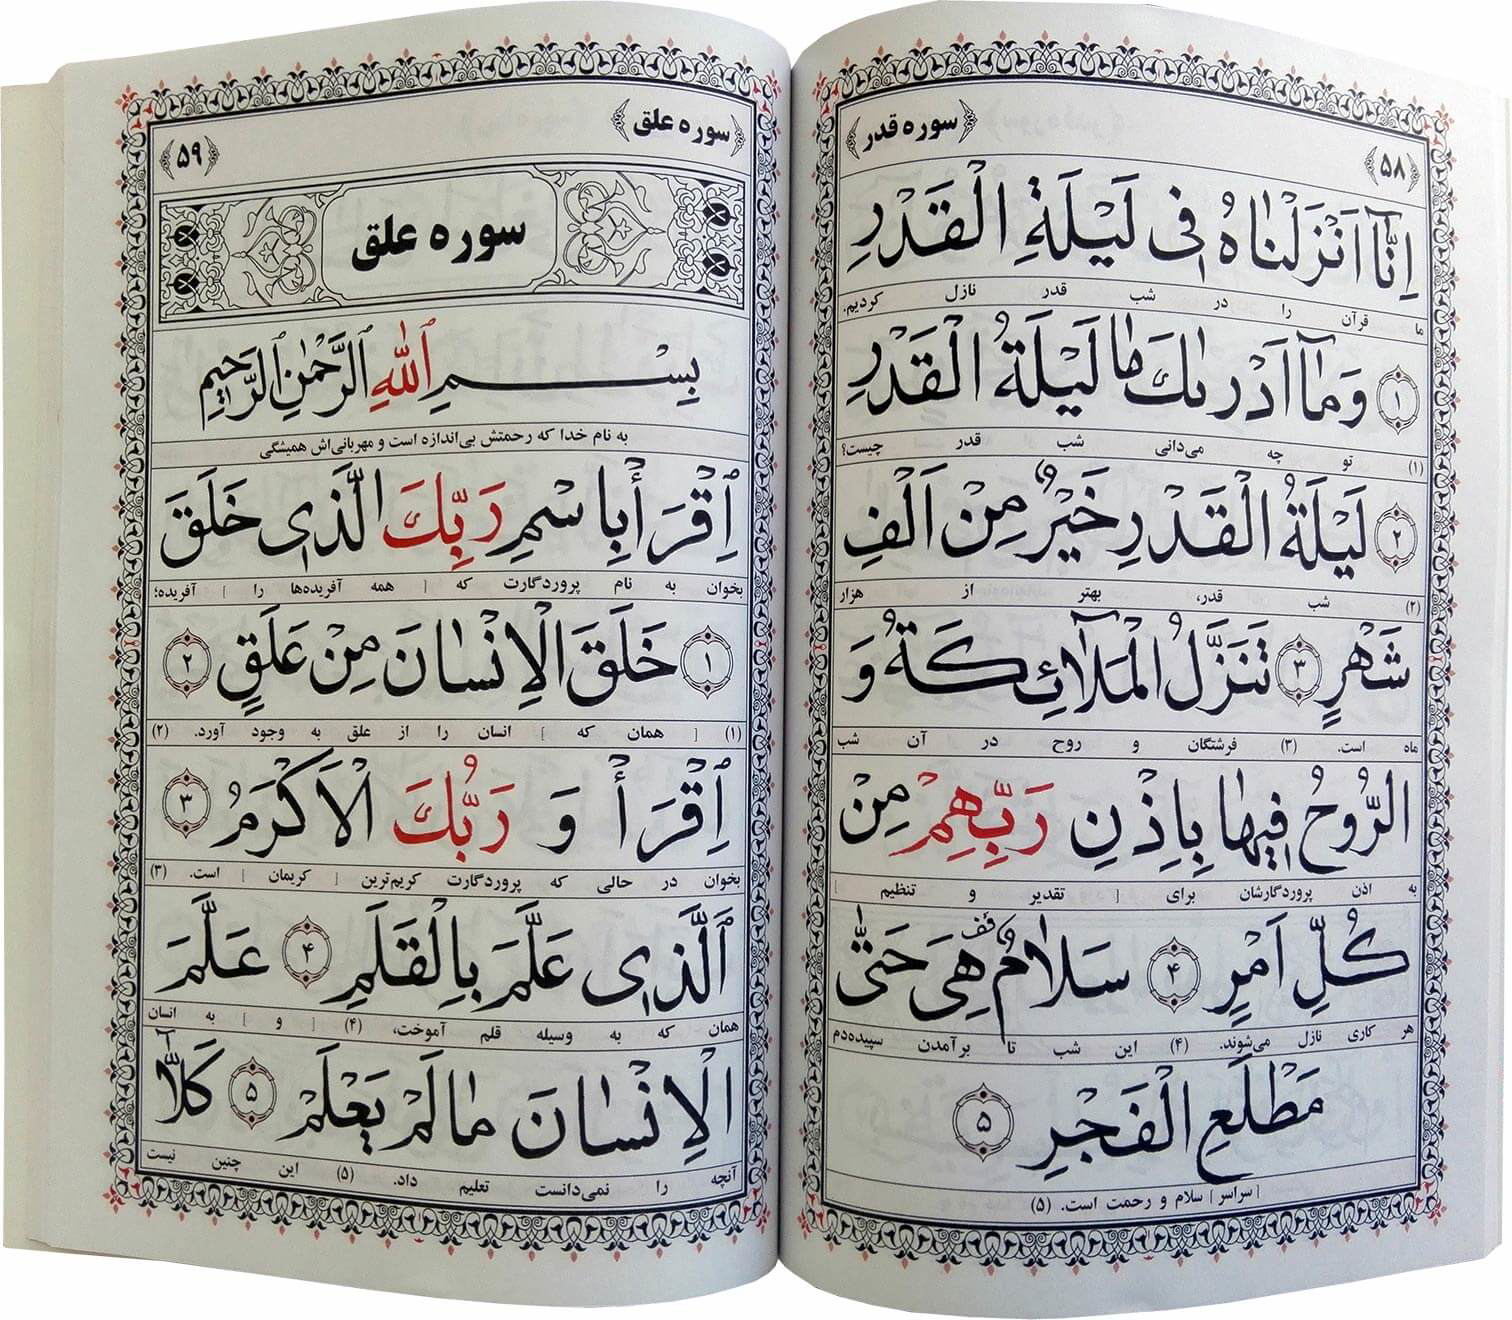 سوره قدر
۵۸
اِنّٰٓا اَنْزَلْنٰاهُ فِی لَیْلَةِ الْقَدْرِ
ما قرآن را در شب قدر نازل کردیم.
۱ وَمٰٓا اَدْرٰىكَ مٰا لَیْلَةُ الْقَدْرِ
(۱) تو چه می‌دانی شب قدر چیست؟
۲ لَیْلَةُ الْقَدْرِ خَیْرٌ مِنْ اَلْفِ
(۲) شب قدر، بهتر از هزار
شَهْرٍ ۳ تَنَزَّلُ الْمَلٰٓائِكَةُ وَ
ماه است. (۳) فرشتگان و روح در آن شب
الرُّوحُ فِیهٰا بِاِذْنِ رَبِّهِمْ مِنْ
به اذن پروردگارشان برای [ تقدیر و تنظیم ]
كُلِّ اَمْرٍ ۴ سَلٰامٌ قف هِیَ حَتّٰی
هر کاری نازل می‌شوند. (۴) این شب تا برآمدن سپیده‌دم
مَطْلَعِ الْفَجْرِ ۵
[ سراسر ] سلام و رحمت است. (۵)
سوره علق
۵۹
سوره علق
بِسْمِ ٱللّٰهِ ٱلرَّحْمٰنِ ٱلرَّحِیمِ
به نام خدا که رحمتش بی‌اندازه است و مهربانی‌اش همیشگی
اِقْرَأْ بِاسْمِ رَبِّكَ الَّذِی خَلَقَ
بخوان به نام پروردگارت که [ همه آفریده‌ها را ] آفریده؛
۱ خَلَقَ الْاِنْسٰانَ مِنْ عَلَقٍ ۲
(۱) [ همان که ] انسان را از علق به وجود آورد. (۲)
اِقْرَأْ وَ رَبُّكَ الْاَكْرَمُ ۳
بخوان در حالی که پروردگارت کریم‌ترین [ کریمان ] است. (۳)
اَلَّذِی عَلَّمَ بِالْقَلَمِ ۴ عَلَّمَ
همان که به وسیله قلم آموخت، (۴) [ و ] به انسان
الْاِنْسٰانَ مٰا لَمْ یَعْلَمْ ۵ كَلّٰٓا
آنچه را نمی‌دانست تعلیم داد. (۵) این چنین نیست